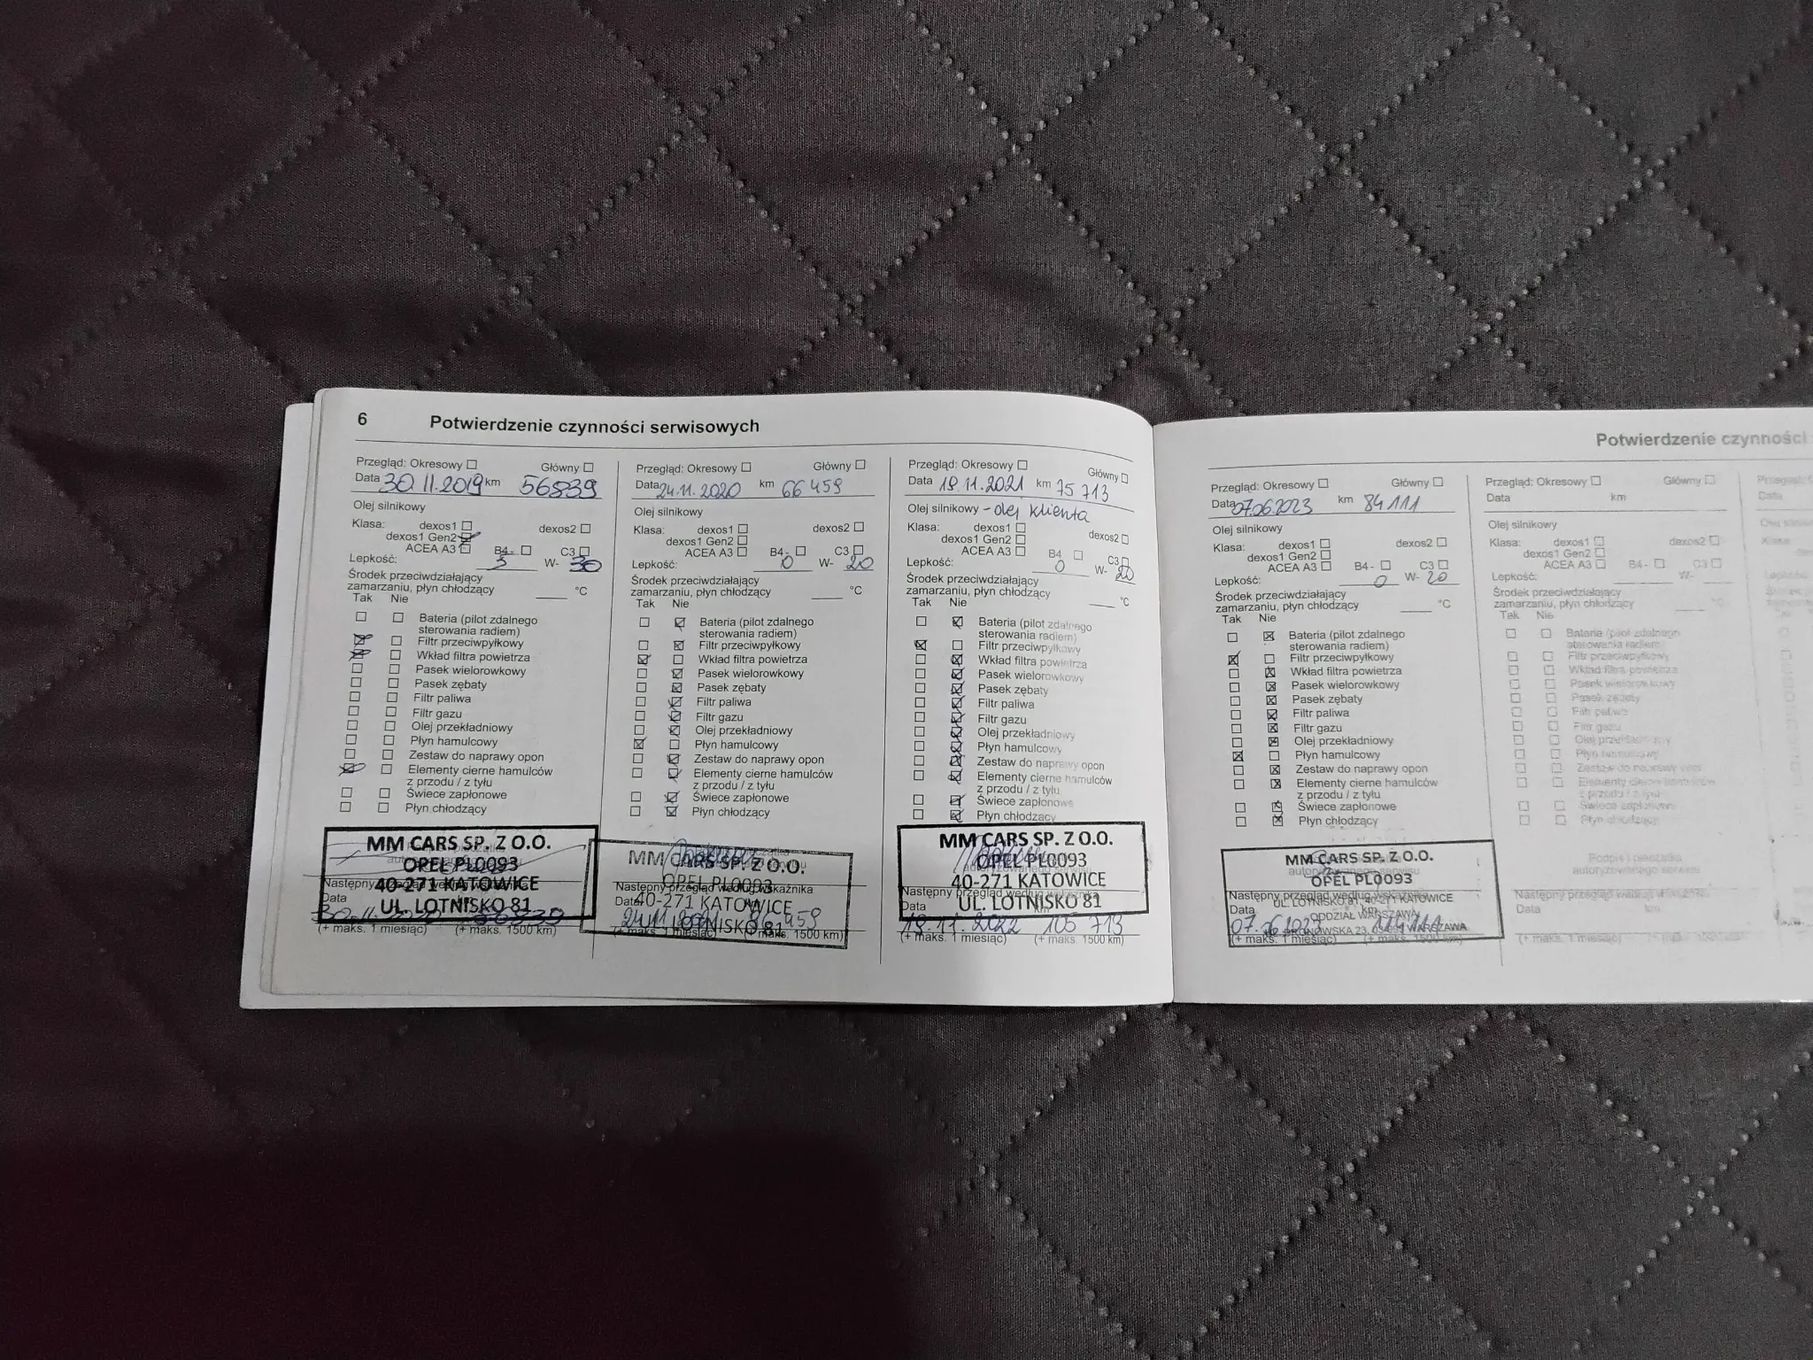 6 Potwierdzenie czynności serwisowych
Przegląd: Okresowy Główny
Data 30.11.2019 km 56839
Olej silnikowy
Klasa: dexos1 dexos2
dexos1 Gen2
ACEA A3 B4- C3
Lepkość: 5 W- 30
Środek przeciwdziałający
zamarzaniu, płyn chłodzący °C
Tak Nie
Bateria (pilot zdalnego
sterowania radiem)
Filtr przeciwpyłkowy
Wkład filtra powietrza
Pasek wielorowkowy
Pasek zębaty
Filtr paliwa
Filtr gazu
Olej przekładniowy
Płyn hamulcowy
Zestaw do naprawy opon
Elementy cierne hamulców
z przodu / z tyłu
Świece zapłonowe
Płyn chłodzący
MM CARS SP. Z O.O.
OPEL PL0093
40-271 KATOWICE
UL. LOTNISKO 81
Następny przegląd według wskaźnika
Data km
30.11.2020
(+ maks. 1 miesiąc) (+ maks. 1500 km)
Przegląd: Okresowy Główny
Data 24.11.2020 km 66 459
Olej silnikowy
Klasa: dexos1 dexos2
dexos1 Gen2
ACEA A3 B4- C3
Lepkość: 0 W- 20
Środek przeciwdziałający
zamarzaniu, płyn chłodzący °C
Tak Nie
Bateria (pilot zdalnego
sterowania radiem)
Filtr przeciwpyłkowy
Wkład filtra powietrza
Pasek wielorowkowy
Pasek zębaty
Filtr paliwa
Filtr gazu
Olej przekładniowy
Płyn hamulcowy
Zestaw do naprawy opon
Elementy cierne hamulców
z przodu / z tyłu
Świece zapłonowe
Płyn chłodzący
MM CARS SP. Z O.O.
OPEL PL0093
40-271 KATOWICE
UL. LOTNISKO 81
Następny przegląd według wskaźnika
Data
24.11.2021 96 459
(+ maks. 1 miesiąc) (+ maks. 1500 km)
Przegląd: Okresowy Główny
Data 19.11.2021 km 75 713
Olej silnikowy - olej klienta
Klasa: dexos1 dexos2
dexos1 Gen2
ACEA A3 B4 C3
Lepkość: 0 W- 20
Środek przeciwdziałający
zamarzaniu, płyn chłodzący °C
Tak Nie
Bateria (pilot zdalnego
sterowania radiem)
Filtr przeciwpyłkowy
Wkład filtra powietrza
Pasek wielorowkowy
Pasek zębaty
Filtr paliwa
Filtr gazu
Olej przekładniowy
Płyn hamulcowy
Zestaw do naprawy opon
Elementy cierne hamulców
z przodu / z tyłu
Świece zapłonowe
Płyn chłodzący
MM CARS SP. Z O.O.
OPEL PL0093
40-271 KATOWICE
UL. LOTNISKO 81
Następny przegląd według wskaźnika
Data km
19.11.2022 105 713
(+ maks. 1 miesiąc) (+ maks. 1500 km)
Potwierdzenie czynności
Przegląd: Okresowy Główny
Data 07.06.2023 km 84 111
Olej silnikowy
Klasa: dexos1 dexos2
dexos1 Gen2
ACEA A3 B4- C3
Lepkość: 0 W- 20
Środek przeciwdziałający
zamarzaniu, płyn chłodzący °C
Tak Nie
Bateria (pilot zdalnego
sterowania radiem)
Filtr przeciwpyłkowy
Wkład filtra powietrza
Pasek wielorowkowy
Pasek zębaty
Filtr paliwa
Filtr gazu
Olej przekładniowy
Płyn hamulcowy
Zestaw do naprawy opon
Elementy cierne hamulców
z przodu / z tyłu
Świece zapłonowe
Płyn chłodzący
MM CARS SP. Z O.O.
autoryzowanego serwisu
OPEL PL0093
Następny przegląd według wskaźnika
UL. LOTNISKO 81, 40-271 KATOWICE
Data km
ODDZIAŁ WARSZAWA
(+ maks. 1 miesiąc) (+ maks. 1500 km)
Przegląd: Okresowy Główny
Data km
Olej silnikowy
Klasa: dexos1 dexos2
dexos1 Gen2
ACEA A3 B4- C3
Lepkość: W-
Środek przeciwdziałający
zamarzaniu, płyn chłodzący °C
Tak Nie
Bateria (pilot zdalnego
sterowania radiem)
Filtr przeciwpyłkowy
Wkład filtra powietrza
Pasek wielorowkowy
Pasek zębaty
Filtr paliwa
Filtr gazu
Olej przekładniowy
Płyn hamulcowy
Zestaw do naprawy opon
Elementy cierne hamulców
z przodu / z tyłu
Świece zapłonowe
Płyn chłodzący
Podpis i pieczątka
autoryzowanego serwisu
Następny przegląd według wskaźnika
Data km
(+ maks. 1 miesiąc) (+ maks. 1500 km)